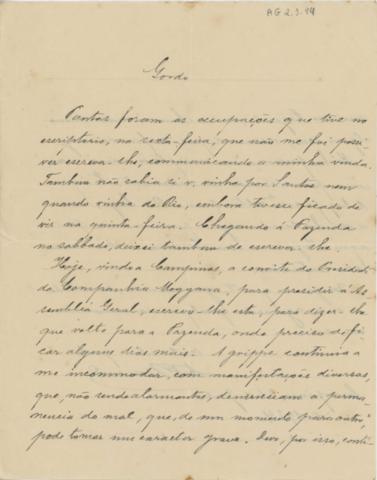 AG 2.3.14
Gordo
Tantas foram as occupações que tive no
escriptorio, na sexta-feira, que não me foi possi-
vel escrever-lhe, communicando a minha vinda.
Tambem não sabia si v. vinha por Santos nem
quando vinha do Rio, embora tivesse ficado de
vir na quinta-feira. Chegando à Fazenda
no sabbado, deixei tambem de escrever-lhe.
Hoje, vindo a Campinas, a convite do Presidente
da Companhia Mogyana, para presidir á As-
sembléa Geral, escrevo-lhe esta, para dizer-lhe
que volto para a Fazenda, onde preciso de fi-
car alguns dias mais. A grippe continua a
me incommodar, com manifestações diversas,
que, não sendo alarmantes, denunciam a perma-
nencia do mal, que, de um momento para outro,
pode tomar um caracter grave. Devo, por isso, conti-